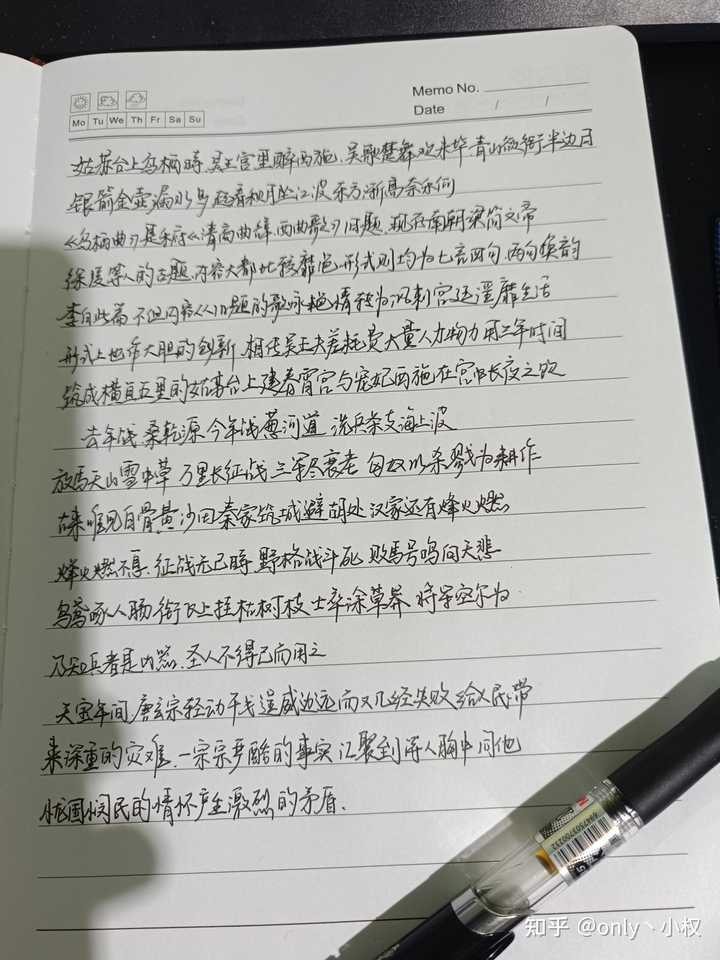 Memo No.
Mo Tu We Th Fr Sa Su
Date / /
姑苏台上乌栖时,吴王宫里醉西施,吴歌楚舞欢未毕,青山欲衔半边日
银箭金壶漏水多 起看秋月坠江波 东方渐高奈乐何
《乌栖曲》是乐府《清商曲辞 西曲歌》旧题,现存南朝梁简文帝
徐陵等人的古题,内容大都比较靡艳,形式则均为七言四句,两句换韵
李白此篇 不但内容从旧题的歌咏艳情转为讽刺宫廷淫靡生活
形式上也作大胆的创新,相传吴王夫差耗费大量人力物力用三年时间
筑成横亘五里的姑苏台上建春宵宫与宠妃西施在宫中长夜之饮
去年战 桑乾源 今年战葱河道 洗兵条支海上波
放马天山雪中草 万里长征战 三军尽衰老 匈奴以杀戮为耕作
古来唯见白骨黄沙田 秦家筑城避胡处 汉家还有烽火燃
烽火燃不息,征战无已时 野格战斗死 败马号鸣向天悲
乌鸢啄人肠 衔飞上挂枯树枝 士卒涂草莽 将军空尔为
乃知兵者是凶器,圣人不得已而用之
天宝年间 唐玄宗轻动干戈逞威边远而又几经失败 给人民带
来深重的灾难,一宗宗严酷的事实 汇聚到诗人胸中 同他
忧国悯民的情怀产生激烈的矛盾.
知乎 @only丶小权